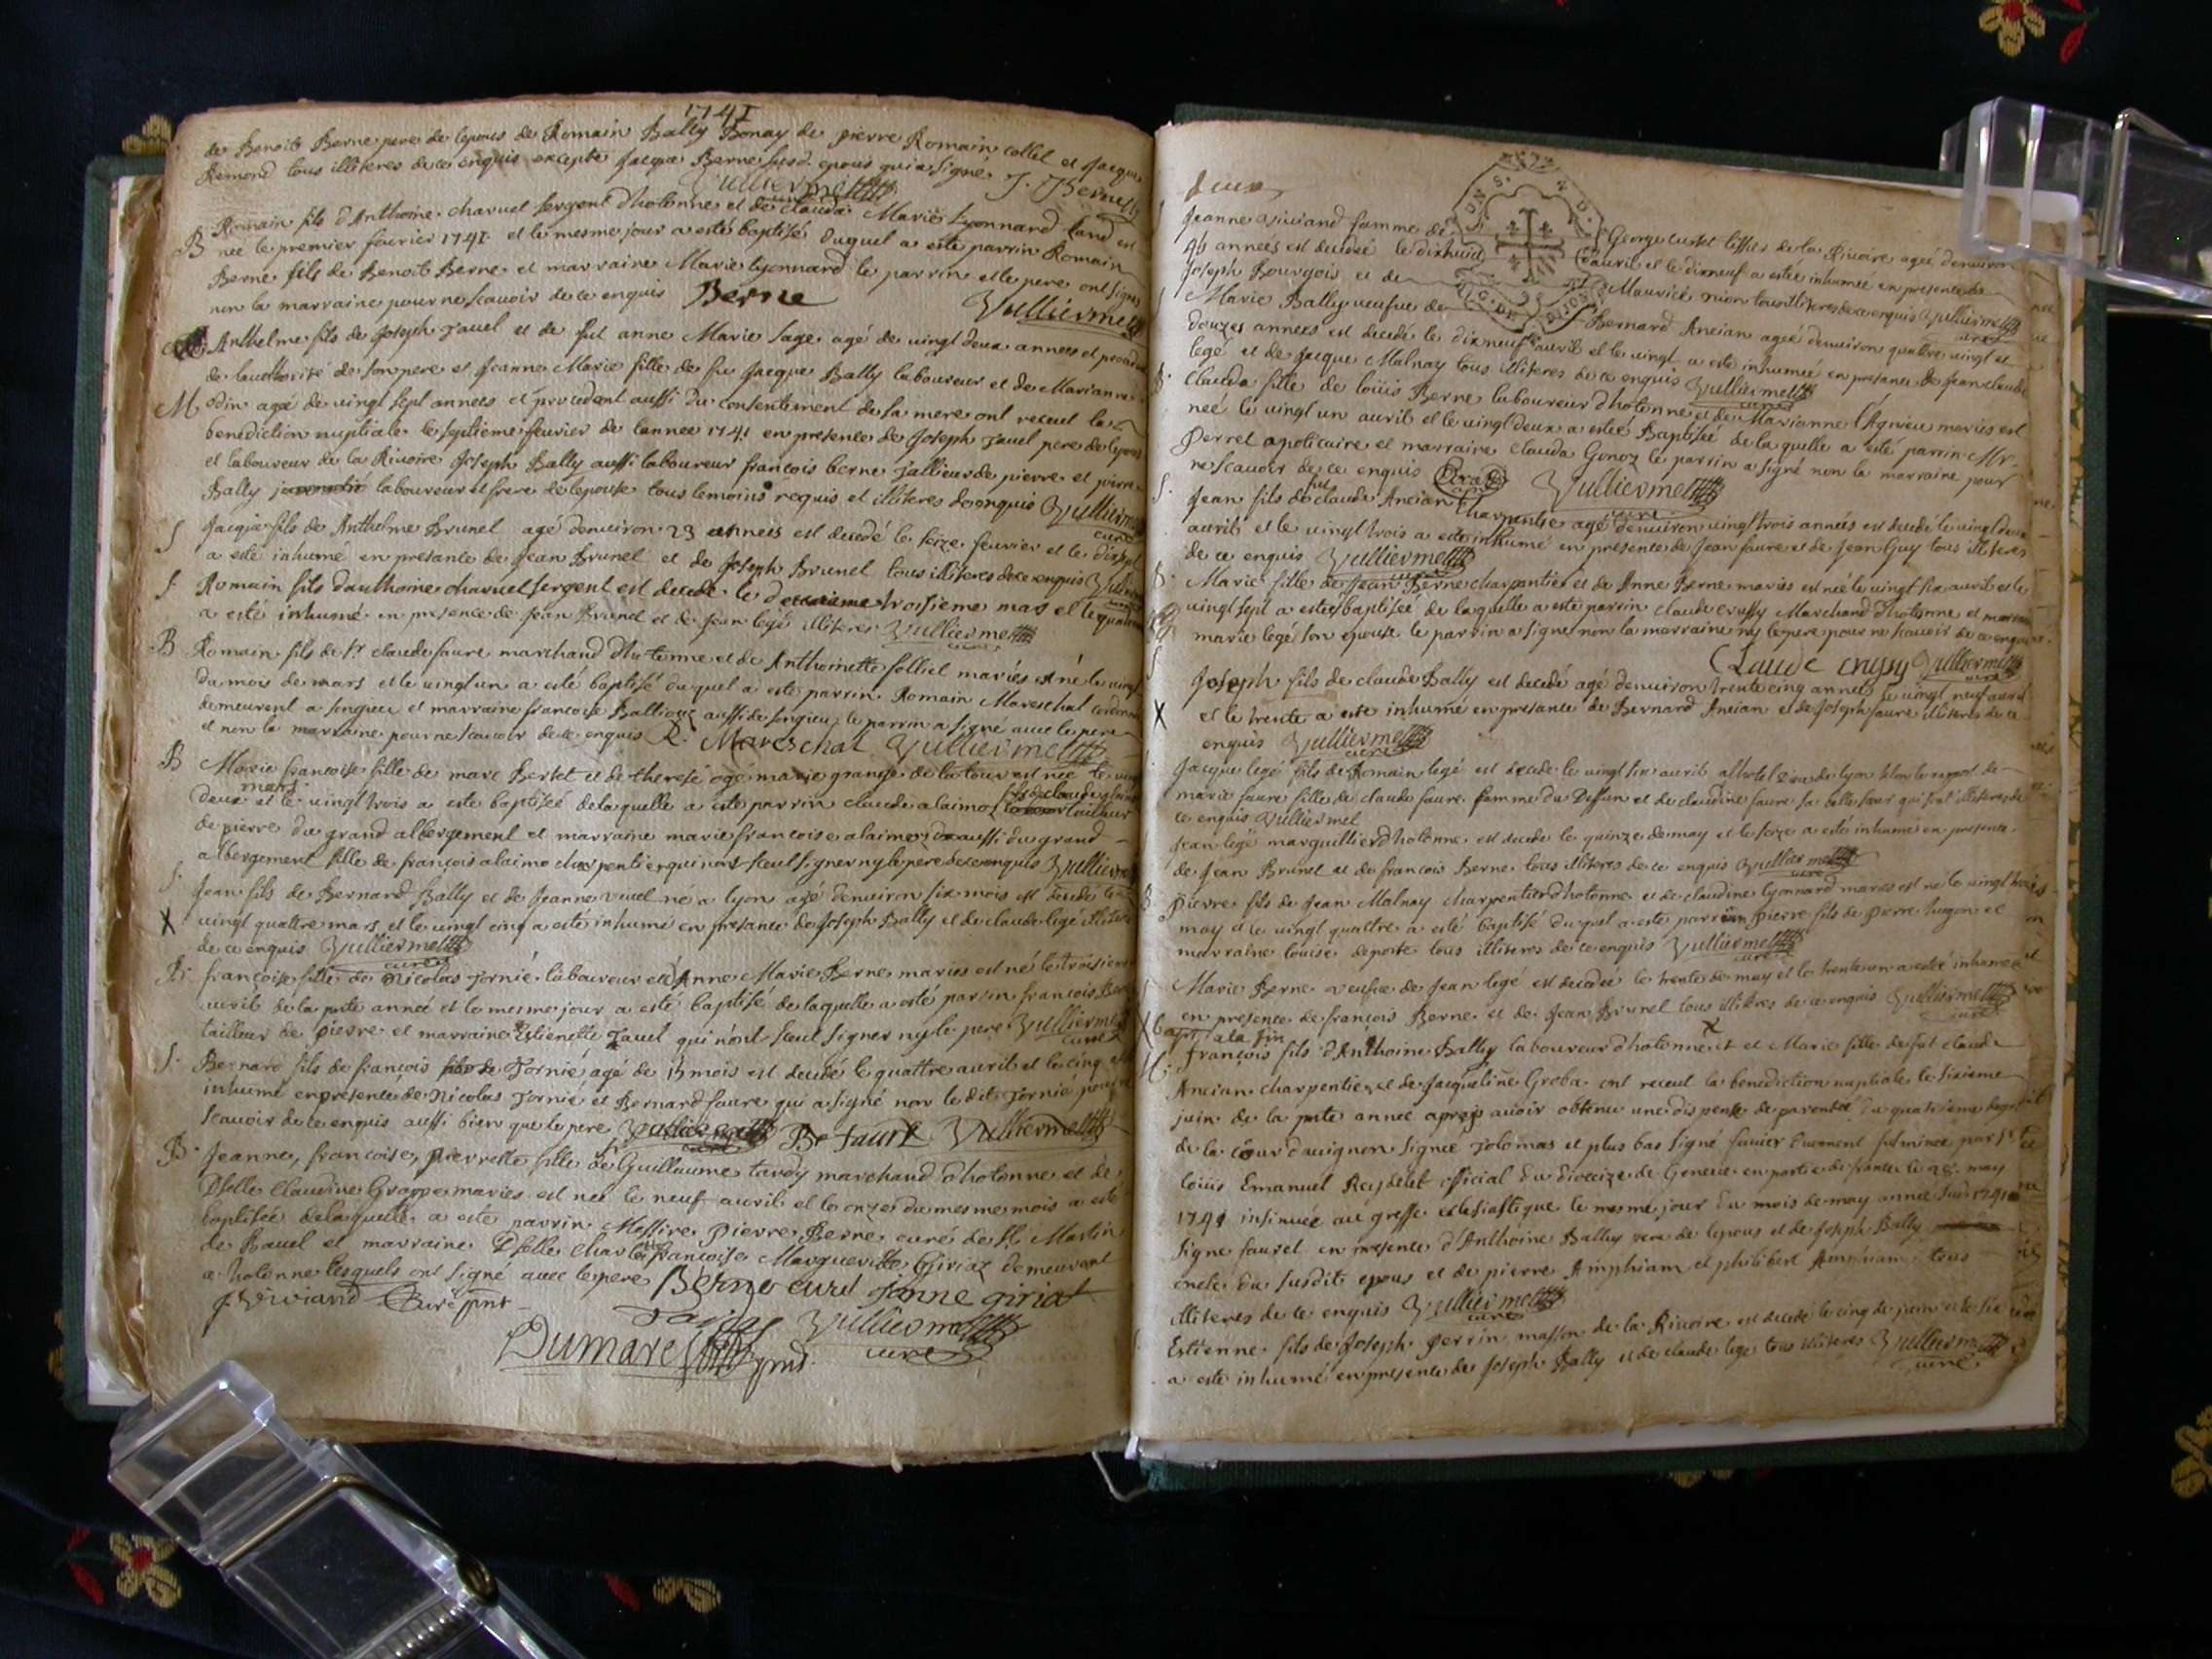 1741
de Benoit Berne pere de lepous de Romain Bally Bonay de pierre Romain collet et Jacque
Remond tous illiteres de ce enquis excepte Jacque Berne epous qui a signé J. J Berne
Vulliermet curé
B Romain fils d'Anthoine charvet sergent d'hotonne et de clauda Mariè Lyonnard
née le premier fevrier 1741 et le mesme jour a esté baptisé duquel a este parrin Romain
Berne fils de Benoit Berne et marraine Marie Lyonnard le parrin et le pere ont signé
non la marraine pour ne scavoir de ce enquis Berne Vulliermet
Anthelme fils de Joseph Javel et de fut anne Marie Sage agé de vingt deux annees et procedant
de lauthorité de son pere et Jeanne Marie fille de fu Jacque Bally laboureur et de Marianne
M odin agée de vingt sept annees et procedant aussi du consentement de sa mere ont receut la
benediction nuptiale le septieme fevrier de lannee 1741 en presence de Joseph Javel pere de lepous
et laboureur de la Rivoire Joseph Bally aussi laboureur francois berne tallieur de pierre et pierre
Bally laboureur et frere de lepouse tous temoins requis et illiteres de ce enquis Vulliermet
curé
S Jacque fils de Anthelme Brunel agé denuiron 23 annees est decedé le seize feurier et le dixsept
a este inhumé en presance de Jean Brunel et de Joseph Brunel tous illiteres de ce enquis Vulliermet
S. Romain fils danthoine charvet sergent est decedé le troisieme mars et le quatrieme
a esté inhumé en presence de Jean Brunel et de Jean legé illiteres Vulliermet
curé
B Romain fils de Sr claude faure marchand d'hotonne et de Anthoinette folliet mariés est né le vingt
du mois de mars et le vingt un a esté baptisé du quel a este parrin Romain Mareschal
demeurent a songieu et marraine francoise Ballioux aussi de songieu, le parrin a signé avec le pere
et non la marraine pour ne scavoir de ce enquis R. Mareschal Vulliermet
B Marie francoise fille de marc Bertet et de therese ogé mariés grange de la tour est née le vingt
mars fils de claude alaimo
deux et le vingt trois a este baptiseé de la quelle a este parrin claude alaimo tailleur
de pierre du grand albergement et marraine marie francoise alaimo aussi du grand
albergement fille de francois alaimo charpentier qui n'ont sceut signer ny le pere de ce enquis Vulliermet
S. Jean fils de Bernard Bally et de Jeanne né a lyon agé denuiron six mois est decedé le
X vingt quattre mars et le vingt cinq a este inhumé en presance de Joseph Bally et de claude legé illiteres
de ce enquis Vulliermet
curé
B. francoise fille de Nicolas Tornié laboureur et d'Anne Marie Berne mariés est né le troisieme
avril de la pnte anneé et le mesme jour a esté baptisé de laquelle a esté parrin francois Berne
tailleur de pierre et marraine Estienette Javel qui n'ont sceut signer ny le pere Vulliermet
curé
S. Bernard fils de francois Tornié agé de 15 mois est decedé le quattre avril et le cinq
inhumé en presence de Nicolas Tornié et Bernard faure qui a signé non ledit Tornié pour ne
scavoir de ce enquis aussi bien que le pere Br faure Vulliermet
B. Jeanne, francoise, Pierrette fille de Guillaume tardy marchand d'hotonne et de
Dselle Claudine Groppe mariés est née le neuf avril et le onze du mesme mois a esté
baptisée de laquelle a este parrin Messire Pierre Berne curé de St Martin
de Bavel et marraine Dselle charlotte francoise Marguerite Giriat demeurant
a hotonne lesquels ont signé avec le pere Berne curé Janne giriat
J. Viviand Curé pnt Vulliermet
Dumare pnt. curé
deux
Jeanne viviand famme de George cusset tissier de la Rivoire ageé denuiron
45 annees est decedeé le dixhuit d'avril et le dixneuf a estée inhumeé en presence de
Joseph Bourgois et de Maurice tous illiteres de ce enquis Vulliermet
curé
Marie Bally veufue de Sr Bernard Ancian ageé denuiron quattre vingt et
douzes annees est decedé le dixneuf avril et le vingt a este inhumeé en presance de Jean claude
legé et de Jacque Malnay tous illiteres de ce enquis Vulliermet
curé
B. Clauda fille de loüis Berne laboureur d'hotonne et de Marianne l'Agneu mariés est
neé le vingt un avril et le vingt deux a esteé Baptisée de la quelle a esté parrin Mr.
Perret apoticaire et marraine clauda Gonoz le parrin a signé non la marraine pour
ne scavoir de ce enquis Vulliermet
curé
S. Jean fils de fut claude Ancian charpentier agé denuiron vingt trois années est decedé le vingt deux
avril et le vingt trois a esté inhumé en presence de Jean faure et de Jean Guy tous illiteres
de ce enquis Vulliermet
curé
B. Marie fille de Jean Berne charpentier et de Anne Berne mariés est neé le vingt six avril et le
vingt sept a esteé baptiseé de laquelle a este parrin claude crussy Marchand d'hotonne et marraine
marie legé son epouse le parrin a signé non la marraine ny le pere pour ne scavoir de ce enquis
Claude crussy Vulliermet
curé
S Joseph fils de claude Bally est decedé agé denuiron trente cinq annees le vingt neuf avril
X et le trente a este inhumé en presance de Bernard Ancian et de Joseph faure illiteres de ce
enquis Vulliermet
curé
Jacque legé fils de Romain legé est decedé le vingt six avril a l'hotel Dieu de lyon selon le raport de
marie faure fille de claude faure famme du Deffun et de claudine faure sa belle soeur qui sont illiteres de
ce enquis Vulliermet
Jean legé marguillier d'hotonne est decedé le quinze de may et le seize a esté inhumé en presence
de Jean Brunel et de francois Berne tous illiteres de ce enquis Vulliermet
curé
B. Pierre fils de Jean Malnay charpentier d'hotonne et de claudine lyonnard mariés est né le vingt trois
may et le vingt quattre a esté baptisé duquel a este parrin pierre fils de pierre hugon et
marraine louise deposte tous illiteres de ce enquis Vulliermet
curé
Marie Berne veufue de Jean legé est decedeé le trente de may et le trente un a esteé inhumeé
en presence de francois Berne et de Jean Brunel tous illiteres de ce enquis Vulliermet
curé
X a la fin X
M. francois fils d'Anthoine Bally laboureur d'hotonne et Marie fille de fut claude
Ancian charpentier et de Jacqueline Groba ont receut la benediction nuptiale le sixieme
juin de la pnte anneé apres auoir obtenu une dispense de parenteé du quatrieme degré
de la cour d'auignon signeé Tolomas et plus bas signé fauier fulmineé par Sr
loüis Emanuel Reydelet official du diocèze de Geneve en partie de france le 28. may
1741 insinuée au greffe eclesiastique le mesme jour du mois de may anneé sud 1741
signe faurel en presence d'Anthoine Bally pere de lepous et de Joseph Bally
oncle du susdit epous et de pierre Amphiam et philibert Amphiam tous
illiteres de ce enquis Vulliermet
curé
Estienne fils de Joseph Perrin masson de la Rivoire est decedé le cinq de juin et le six
a esté inhumé en presence de Joseph Bally et de claude legé tous illiteres Vulliermet
curé